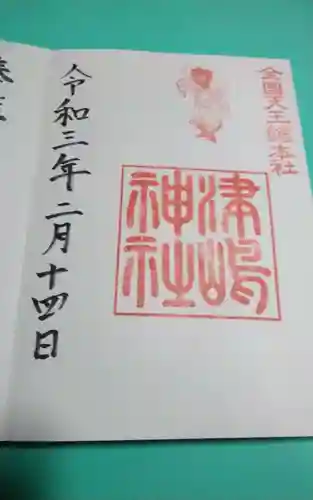 全國天王總本社
津嶋
神社
令和三年二月十四日